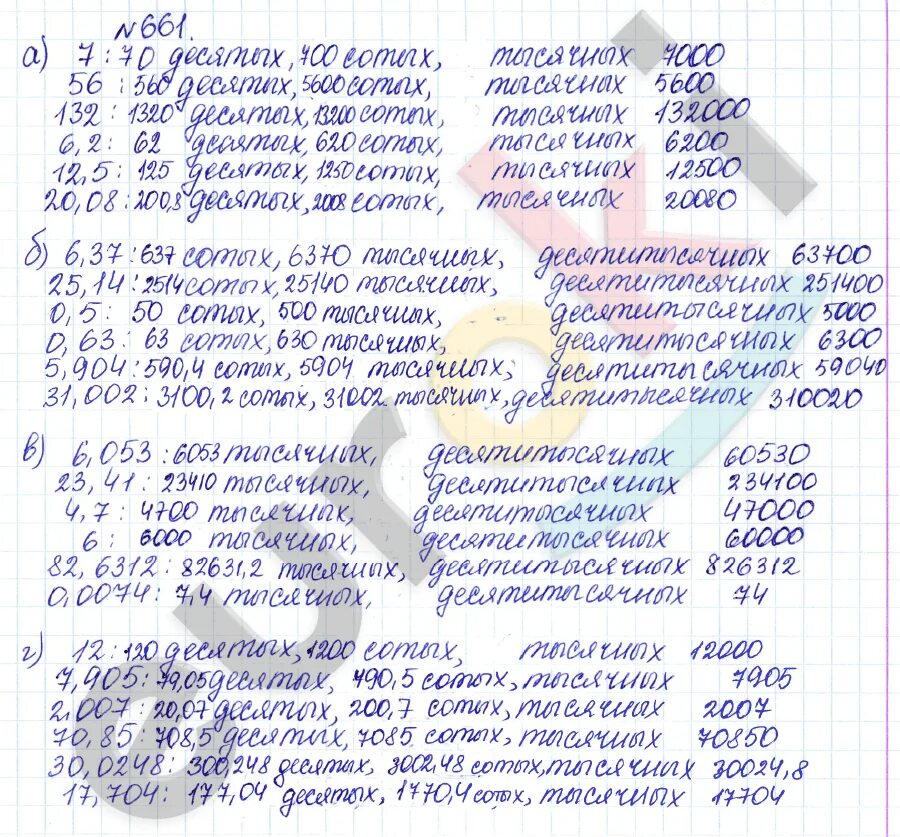 №661.
а) 7 : 70 десятых, 700 сотых, тысячных 7000
56 : 560 десятых, 5600 сотых, тысячных 5600
132 : 1320 десятых, 13200 сотых, тысячных 132000
6,2 : 62 десятых, 620 сотых, тысячных 6200
12,5 : 125 десятых, 1250 сотых, тысячных 12500
20,08 : 200,8 десятых, 2008 сотых, тысячных 20080
б) 6,37 : 637 сотых, 6370 тысячных, десятитысячных 63700
25,14 : 2514 сотых, 25140 тысячных, десятитысячных 251400
0,5 : 50 сотых, 500 тысячных, десятитысячных 5000
0,63 : 63 сотых, 630 тысячных, десятитысячных 6300
5,904 : 590,4 сотых, 5904 тысячных, десятитысячных 59040
31,002 : 3100,2 сотых, 31002 тысячных, десятитысячных 310020
в) 6,053 : 6053 тысячных, десятитысячных 60530
23,41 : 23410 тысячных, десятитысячных 234100
4,7 : 4700 тысячных, десятитысячных 47000
6 : 6000 тысячных, десятитысячных 60000
82,6312 : 82631,2 тысячных, десятитысячных 826312
0,0074 : 7,4 тысячных, десятитысячных 74
г) 12 : 120 десятых, 1200 сотых, тысячных 12000
7,905 : 79,05 десятых, 790,5 сотых, тысячных 7905
2,007 : 20,07 десятых, 200,7 сотых, тысячных 2007
70,85 : 708,5 десятых, 7085 сотых, тысячных 70850
30,0248 : 300,248 десятых, 3002,48 сотых, тысячных 30024,8
17,704 : 177,04 десятых, 1770,4 сотых, тысячных 17704
euroki